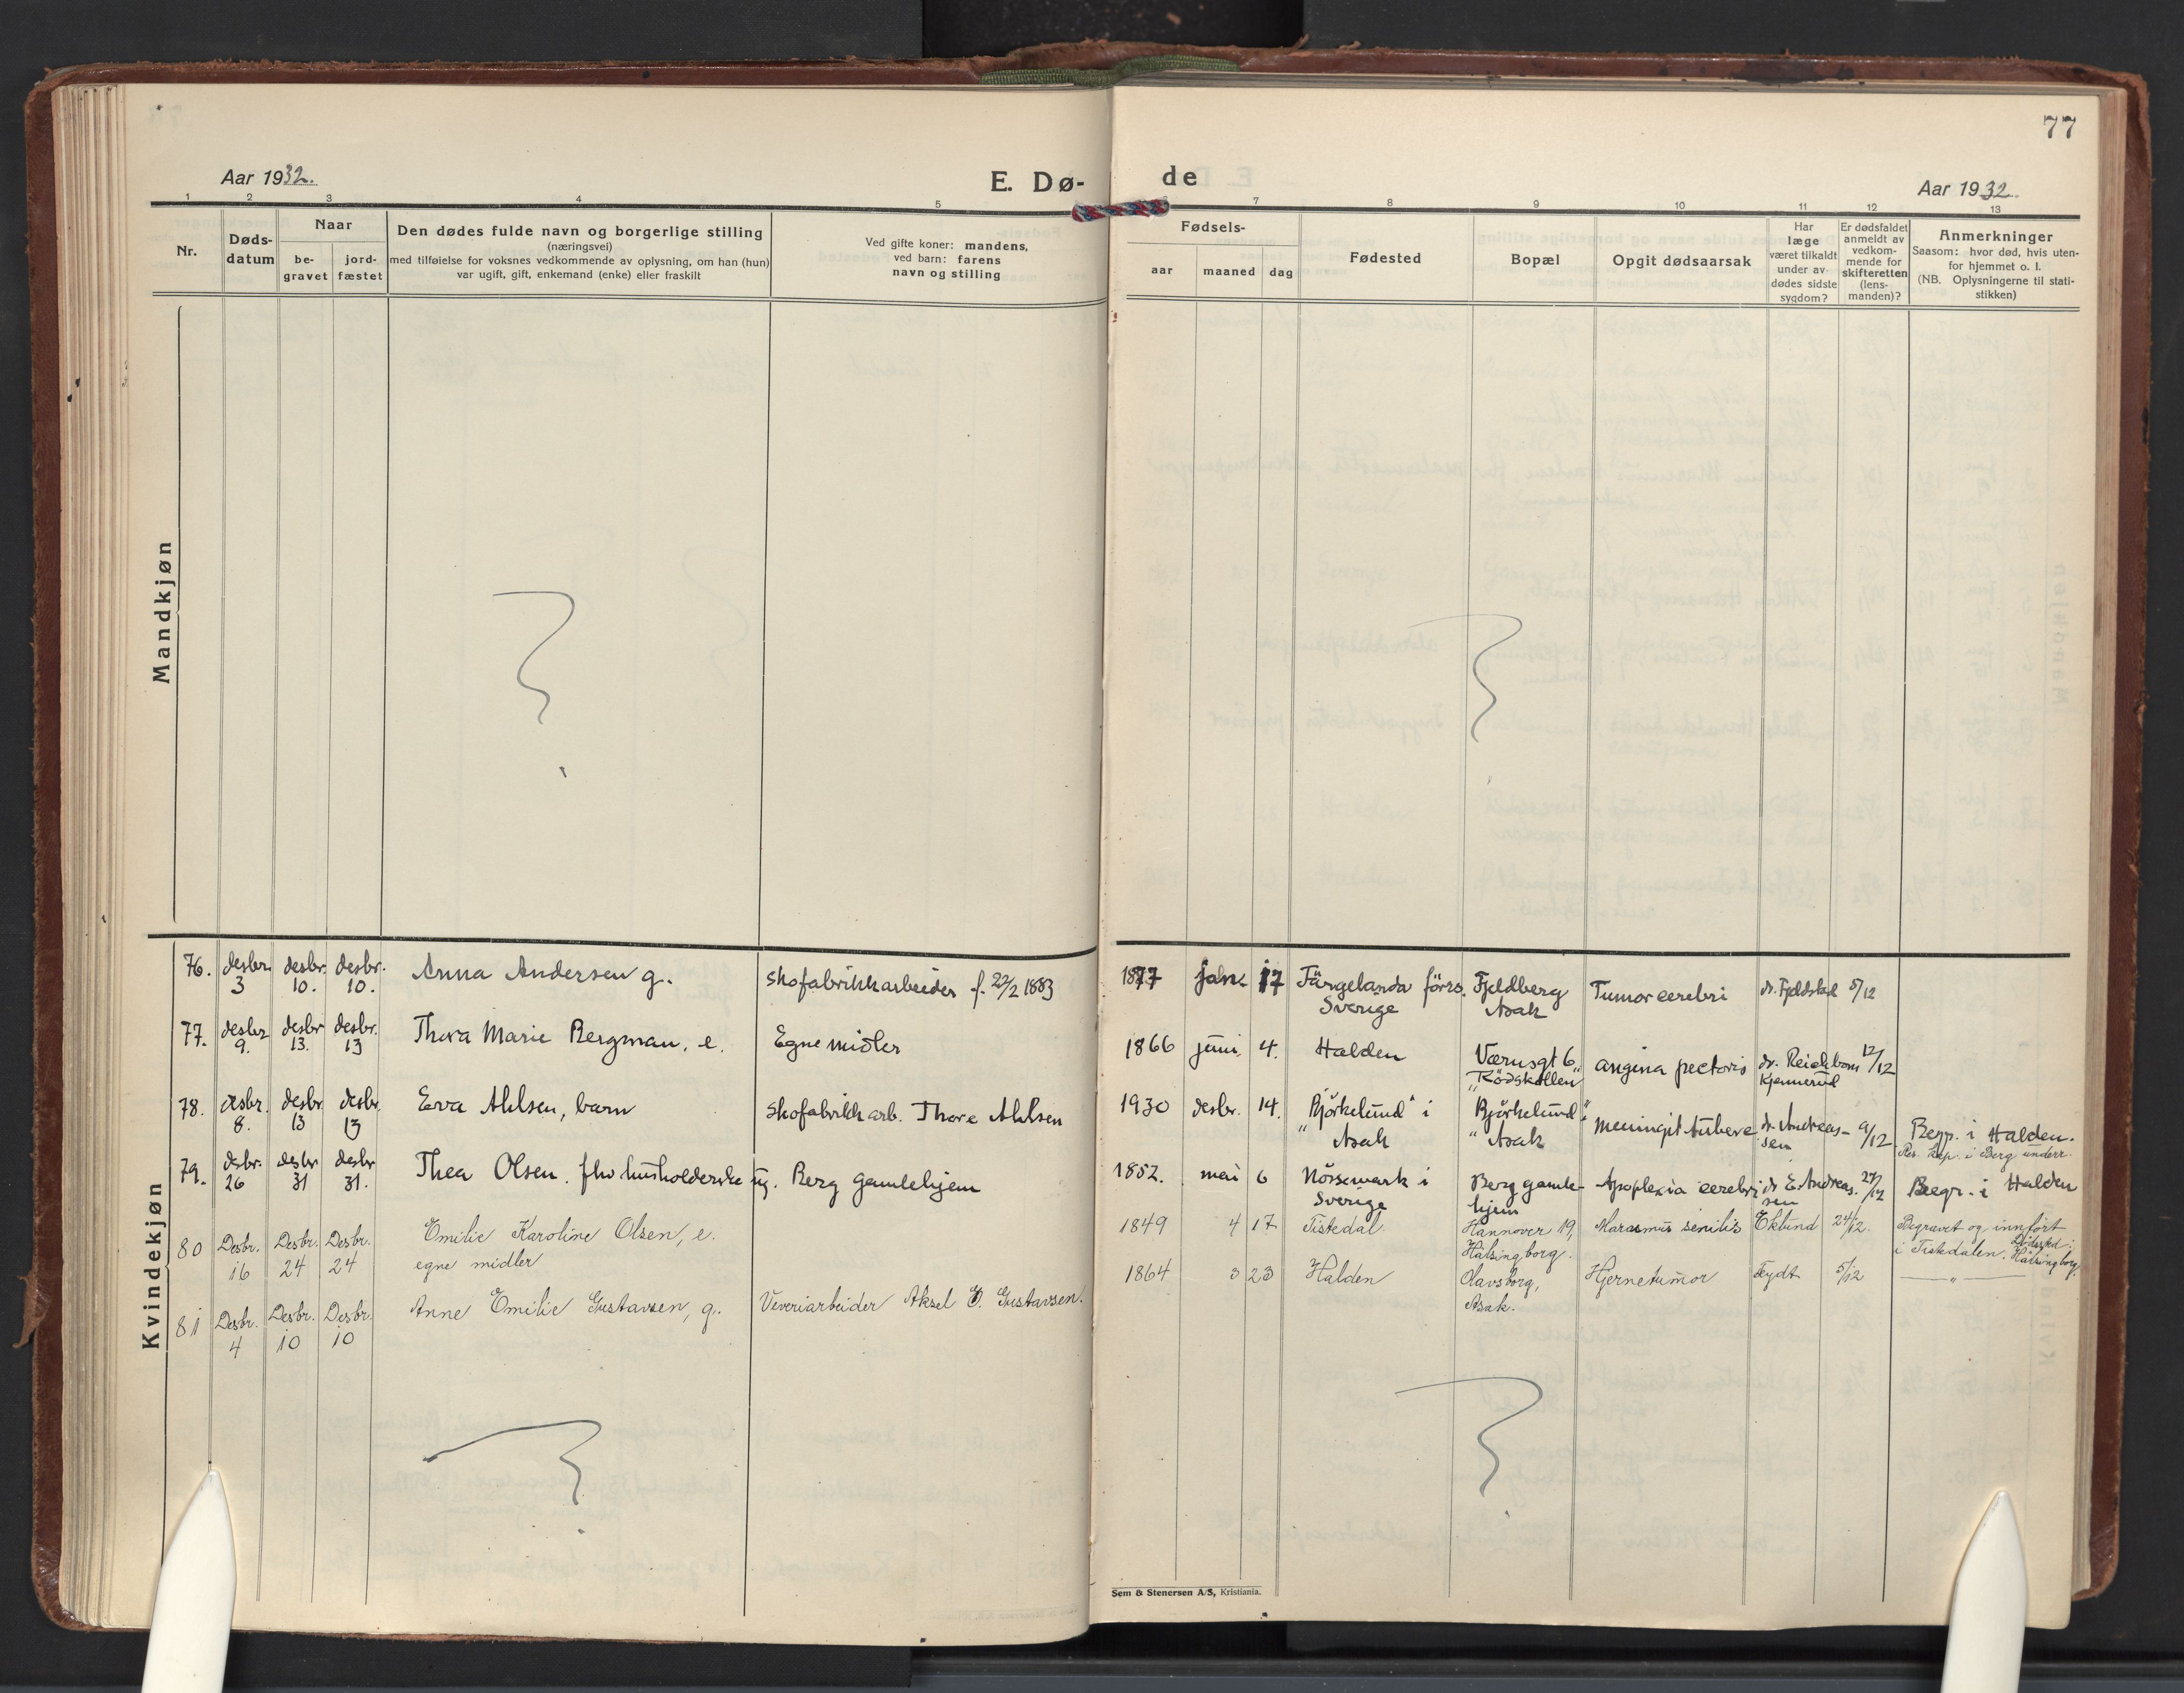 77
Aar 1932.
E. Dø-
de
Aar 1932
1 2 3 4 5 7 8 9 10 11 12 13
Nr.
Døds-
datum
Naar
be-
gravet
jord-
fæstet
Den dødes fulde navn og borgerlige stilling
(næringsvei)
med tilføielse for voksnes vedkommende av oplysning, om han (hun)
var ugift, gift, enkemand (enke) eller fraskilt
Ved gifte koner: mandens,
ved barn: farens
navn og stilling
Fødsels-
aar maaned dag
Fødested
Bopæl
Opgit dødsaarsak
Har
læge
været tilkaldt
under av-
dødes sidste
sygdom?
Er dødsfaldet
anmeldt av
vedkom-
mende for
skifteretten
(lens-
manden)?
Anmerkninger
Saasom: hvor død, hvis uten-
for hjemmet o. l.
(NB. Oplysningerne til stati-
stikken)
Mandkjøn
Kvindekjøn
76. desbr. 3 desbr. 10. desbr. 10. Anna Andersen g. skofabrikkarbeider f. 22/2 1883 1877 jan. 17 Färgelanda förs. Sverige Fjeldberg Asak Tumor cerebri dr. Fjeldstad 5/12
77. desbr 9. desbr 13. desbr. 13 Thora Marie Bergman, e. Egne midler 1866 juni 4. Halden Værnsgt 6 "Rödskollen" angina pectoris dr. Reichborn Kjennerud 12/12
78. desbr. 8. desbr 13 desbr 13 Eva Ahlsen, barn skofabrikkarb. Thore Ahlsen 1930 desbr. 14. "Björkelund" i Asak "Björkelund" Asak meningit tuberc dr. Andreas-sen 9/12 Begr. i Halden. i Berg underr.
79. desbr. 26 desbr 31 desbr 31. Thea Olsen. fhv husholderske ug. Berg gamlehjem 1852. mai 6 Nössemark i Sverige Berg gamle-hjem Apoplexia cerebri dr E. Andreas.sen 27/12 Begr. i Halden
80 Desbr. 16 Desbr. 24 Desbr. 24 Emilie Karoline Olsen, e. egne midler 1849 4 17 Tistedal. Hannover 19, Hälsingborg. Marasmus senilis Eklund 24/12. Begravet og innført i Tistedalen. Dødssted: Hälsingborg.
81 Desbr. 4 Desbr. 10 Desbr. 10 Anne Emilie Gustavsen, g. Veveriarbeider Aksel E. Gustavsen. 1864 3 23 Halden Olavsborg, Asak. Hjernetumor Feydt 5/12 — " —
Sem & Stenersen A/S, Kristiania.